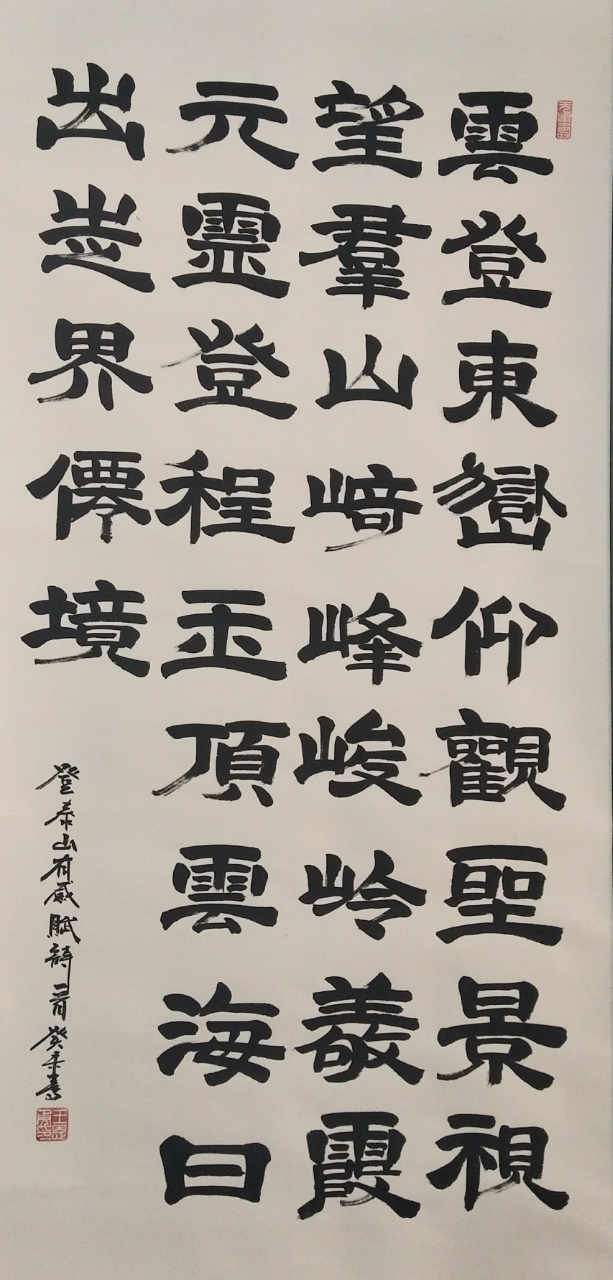 雲登東嶽仰觀聖景視
望羣山崎峰峻岭羲霞
元靈登程玉頂雲海日
出岀界僊境
登泰山有感賦詩二首癸未書